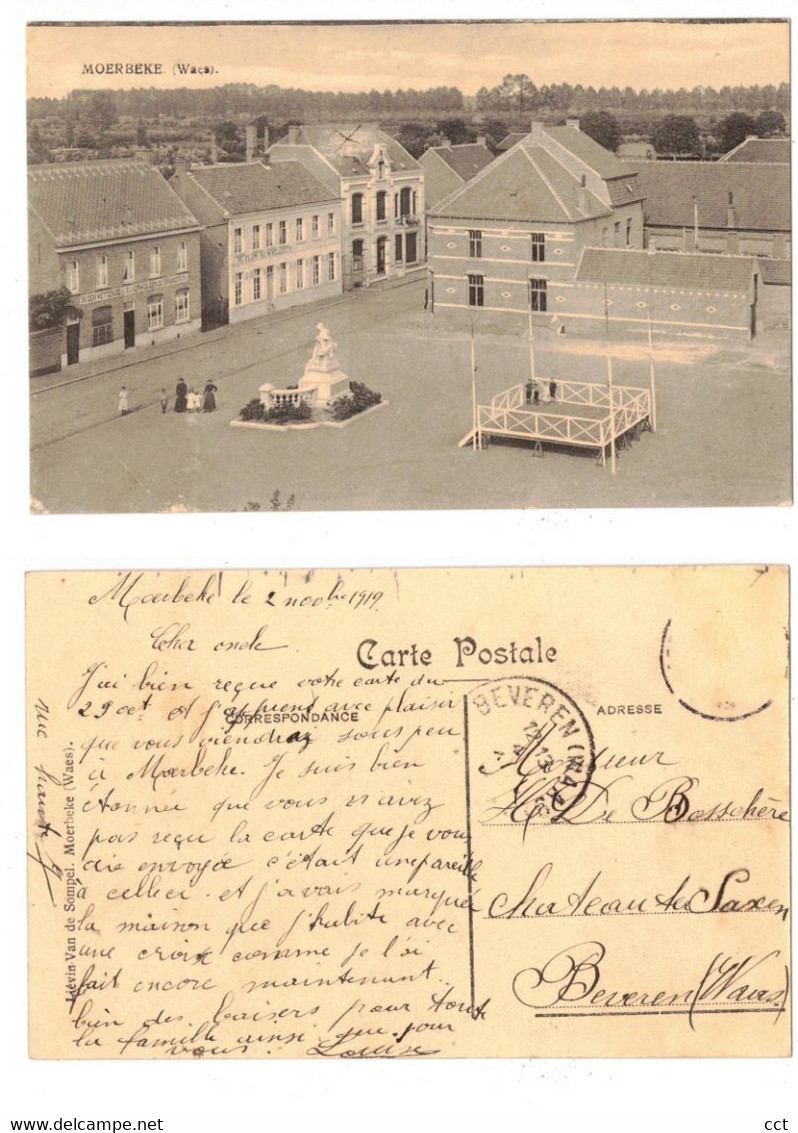 MOERBEKE. (Waes).
Moerbeke le 2 nobre 1919
Cher oncle
Carte Postale
J'ai bien reçue votre carte du
29 oct et j'apprend avec plaisir
CORRESPONDANCE
ADRESSE
que vous viendrez sous peu
à Moerbeke. Je suis bien
étonnée que vous n'avez
pas reçu la carte que je vous
aie envoyée c'était une pareille
à celleci et j'avais marquée
la maison que j'habite avec
une croix comme je l'ai
fait encore maintenant.
bien des baisers pour toute
la famille ainsi que pour
vous. Louise
BEVEREN (WAAS)
Monsieur
De Bosschère
Chateau de Saxen
Beveren (Waes)
Liévin-Van de Sompel. Moerbeke (Waes).
cct